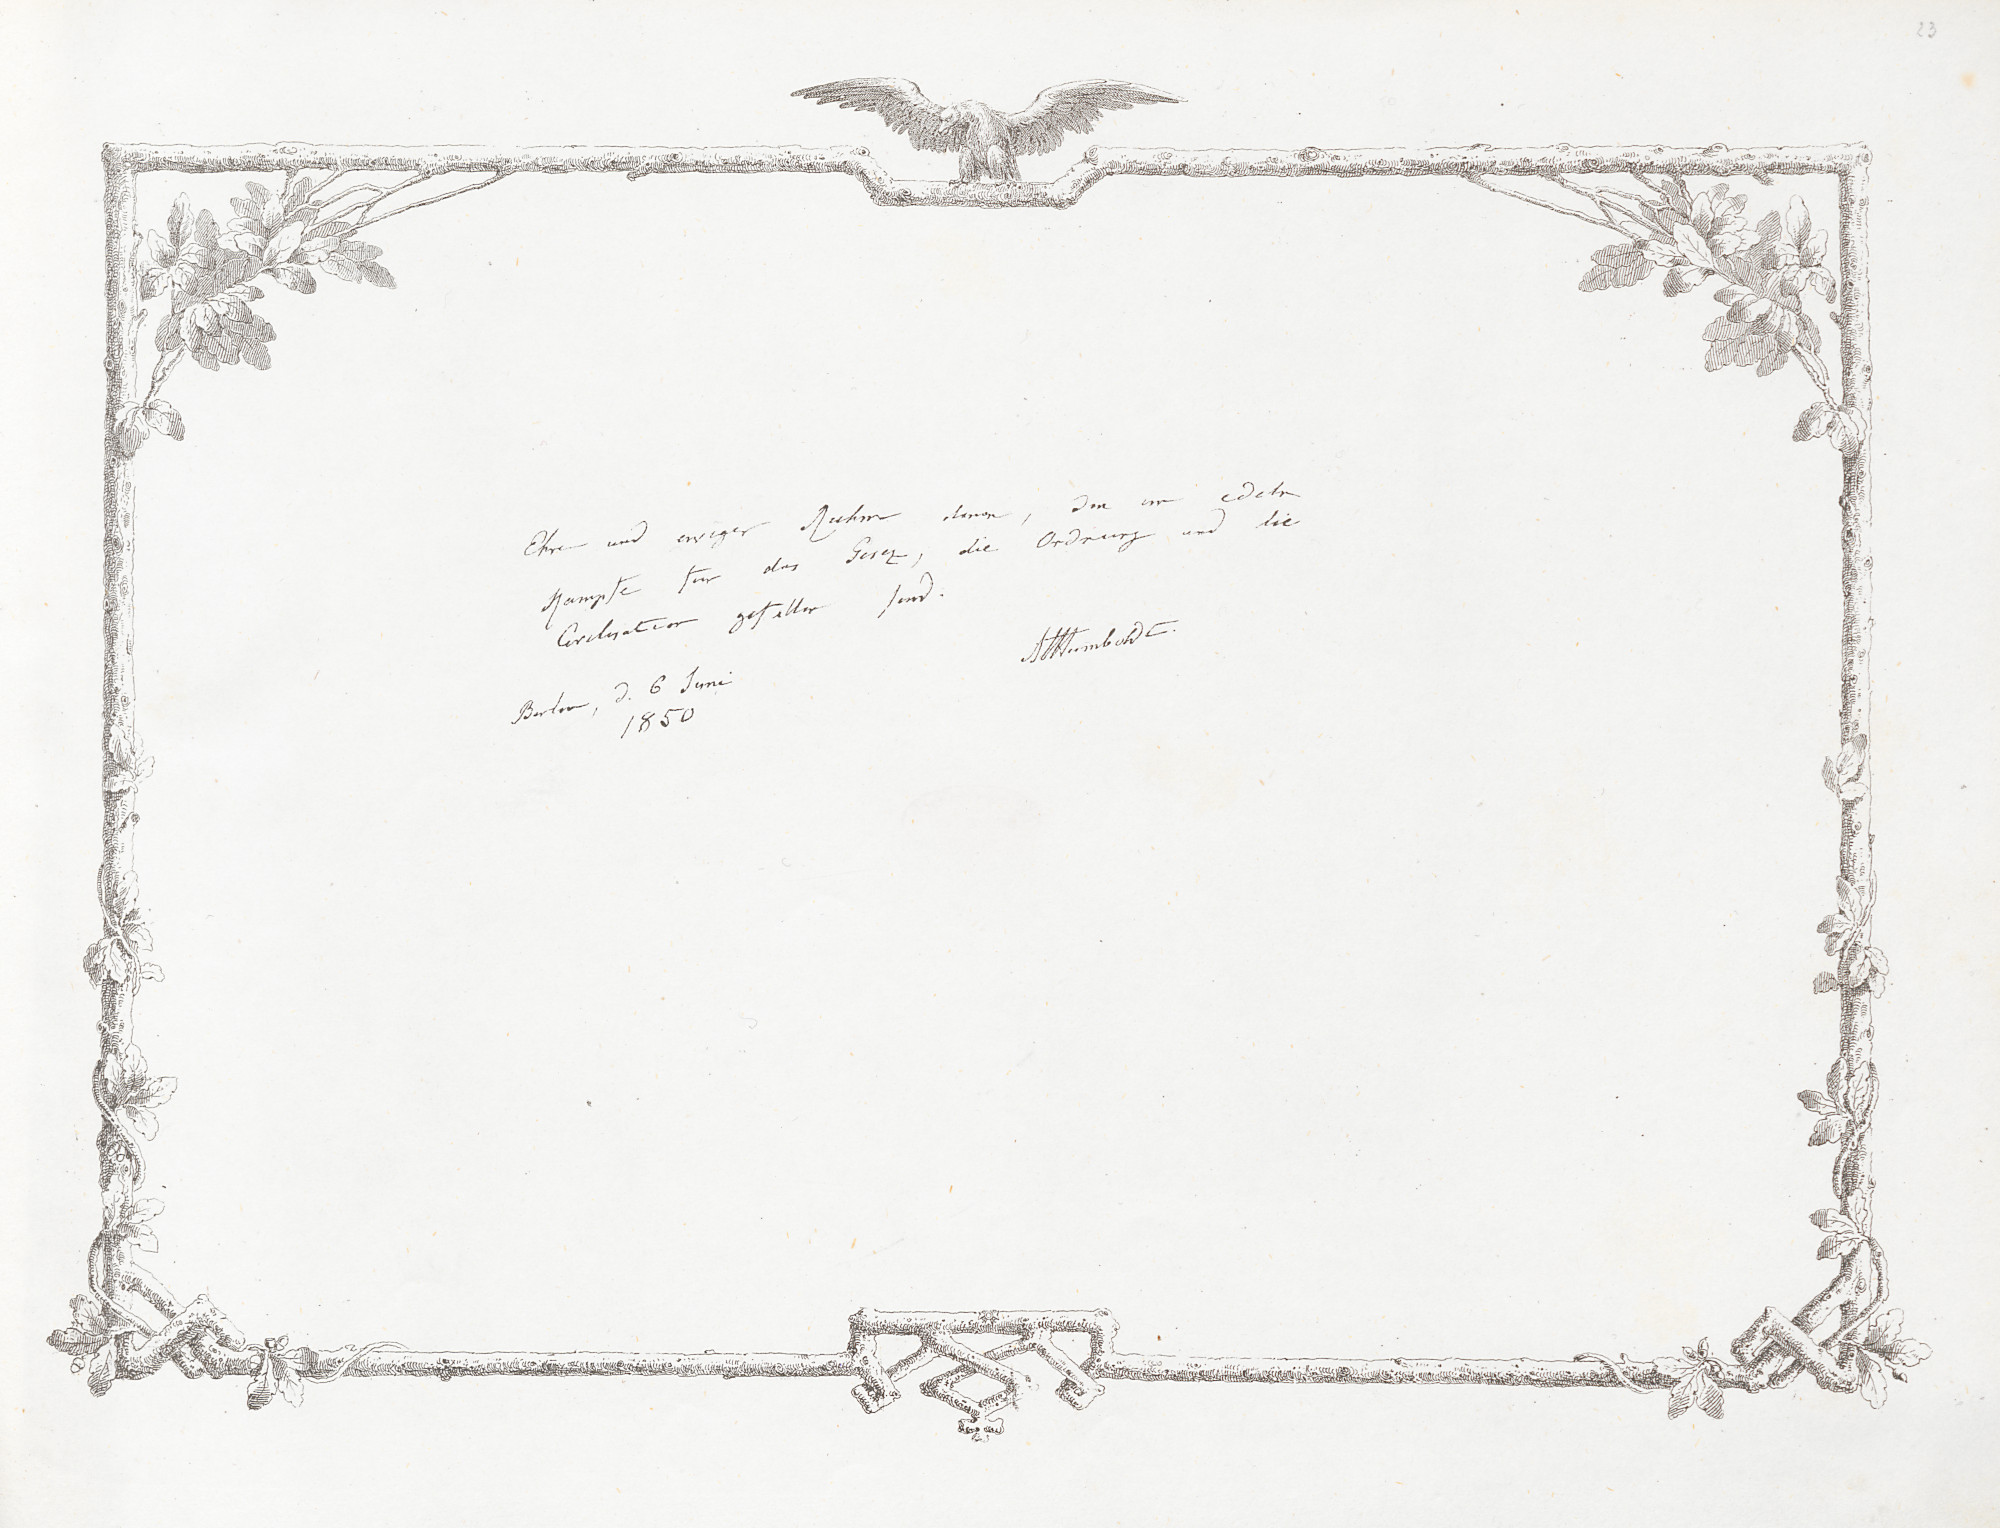 23
Ehre und ewiger Ruhm denen, die im edeln
Kampfe für das Gesez, die Ordnung und die
Civilisation gefallen sind.
AvHumboldt.
Berlin, d. 6 Juni
1850